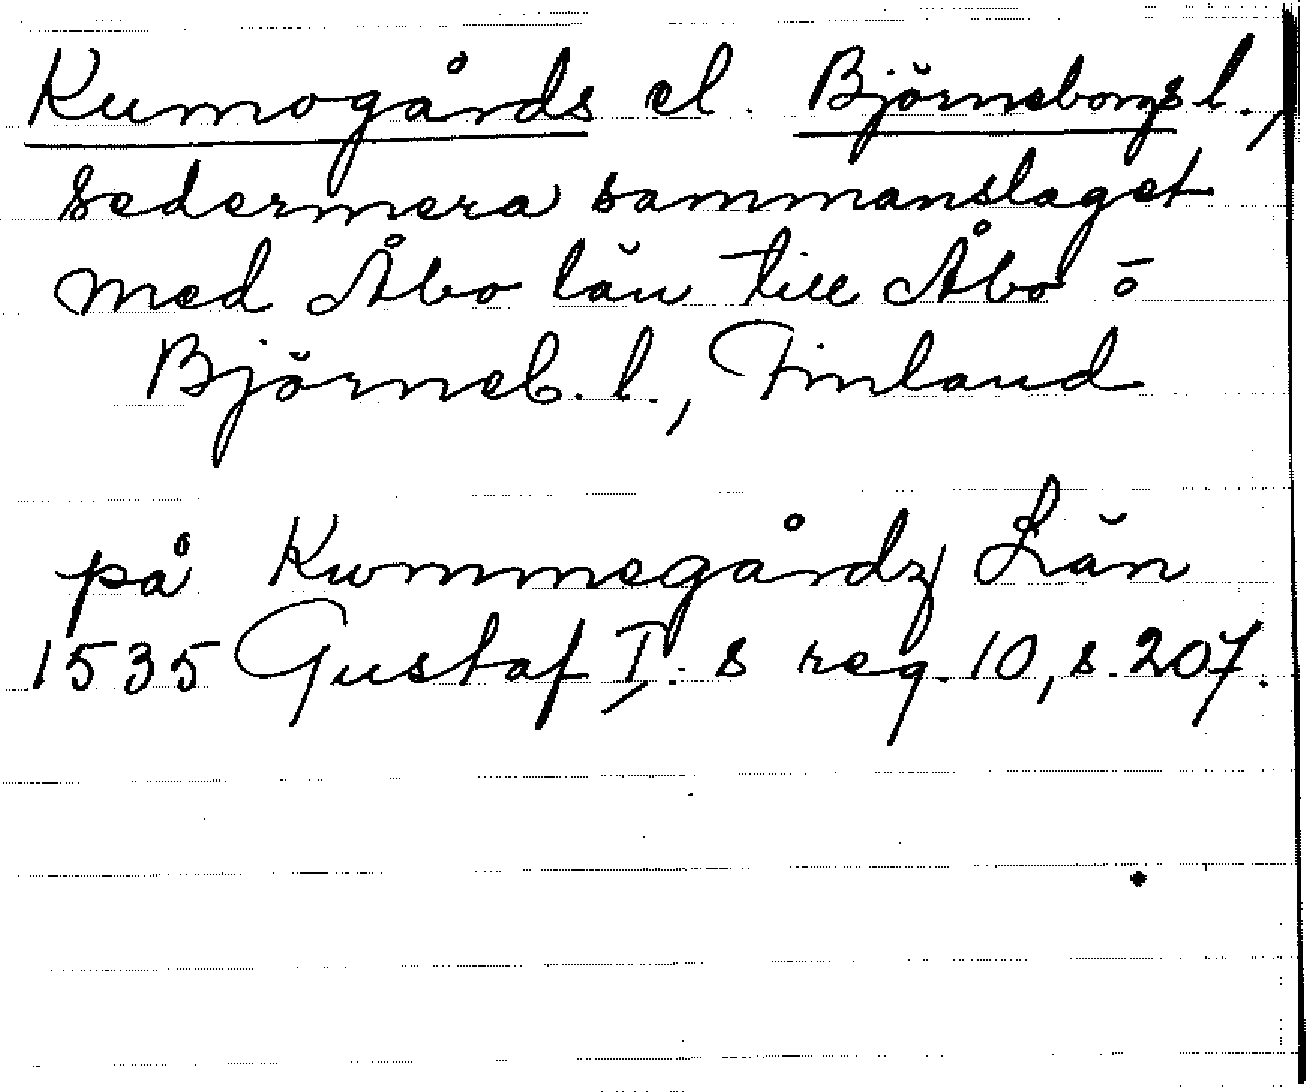 Kumogårds el. Björneborgs l.,
sedermera sammanslaget
med Åbo län till Åbo o
Björneb. l., Finland
på Kwmmegårdz Län
1535 Gustaf I:s reg. 10, s. 207.